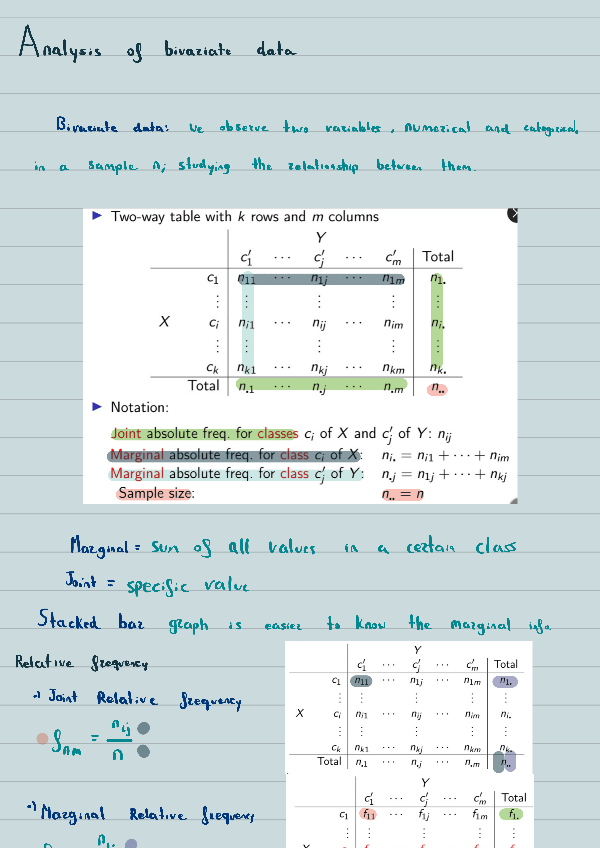 Analysis of bivariate data
Bivariate data: we observe two variables, numerical and categorical,
in a sample n; studying the relationship between them.
▶ Two-way table with k rows and m columns
Y
c′1 ··· c′j ··· c′m Total
c1 n11 ··· n1j ··· n1m n1•
⋮ ⋮ ⋮ ⋮ ⋮
X ci ni1 ··· nij ··· nim ni•
⋮ ⋮ ⋮ ⋮ ⋮
ck nk1 ··· nkj ··· nkm nk•
Total n•1 ··· n•j ··· n•m n••
▶ Notation:
Joint absolute freq. for classes ci of X and c′j of Y: nij
Marginal absolute freq. for class ci of X: ni• = ni1 + ··· + nim
Marginal absolute freq. for class c′j of Y: n•j = n1j + ··· + nkj
Sample size: n•• = n
Marginal = sum of all values in a certain class
Joint = specific value
Stacked bar graph is easier to know the marginal info
Relative frequency
·) Joint Relative frequency
fnm = nij
n
Y
c′1 ··· c′j ··· c′m Total
c1 n11 ··· n1j ··· n1m n1•
⋮ ⋮ ⋮ ⋮ ⋮
X ci ni1 ··· nij ··· nim ni•
⋮ ⋮ ⋮ ⋮ ⋮
ck nk1 ··· nkj ··· nkm nk•
Total n•1 ··· n•j ··· n•m n••
·) Marginal Relative frequency
Y
c′1 ··· c′j ··· c′m Total
c1 f11 ··· f1j ··· f1m f1•
⋮ ⋮ ⋮ ⋮ ⋮